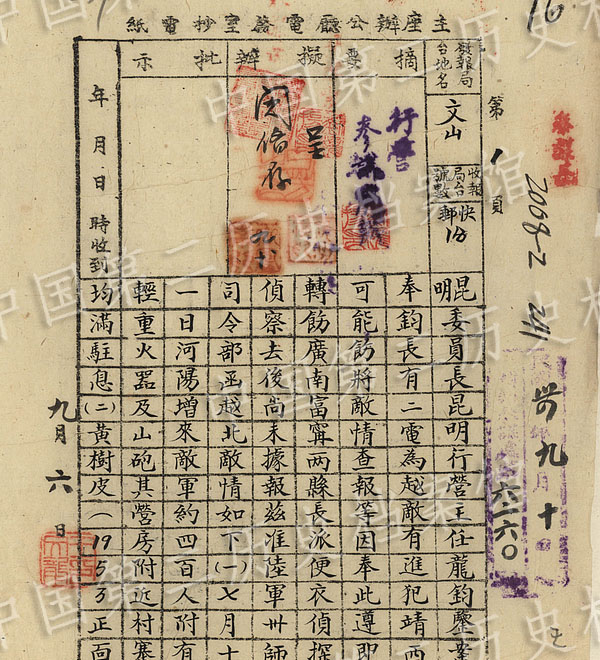 16
主座辦公廳電務室抄電紙
第1頁
2068-2 241
九月十日
發報局台地名
文山
收報局台號數
快郵1份
摘要
行營
參謀
擬辦
呈
閱後存
九、十、
批示
年月日時收到
昆明委員長昆明行營主任龍鈞鑒案
奉鈞長有二電為越敵有進犯靖西
可能飭將敵情查報等因奉此遵即
轉飭廣南富寧兩縣長派便衣偵探
偵察去後尚未據報茲准陸軍卅師
司令部函越北敵情如下(一)七月十
一日河陽增來敵軍約四百人附有
輕重火器及山砲其營房附近村寨
均滿駐息(二)黃樹皮(1953正面
九月六日
中国第二历史档案馆